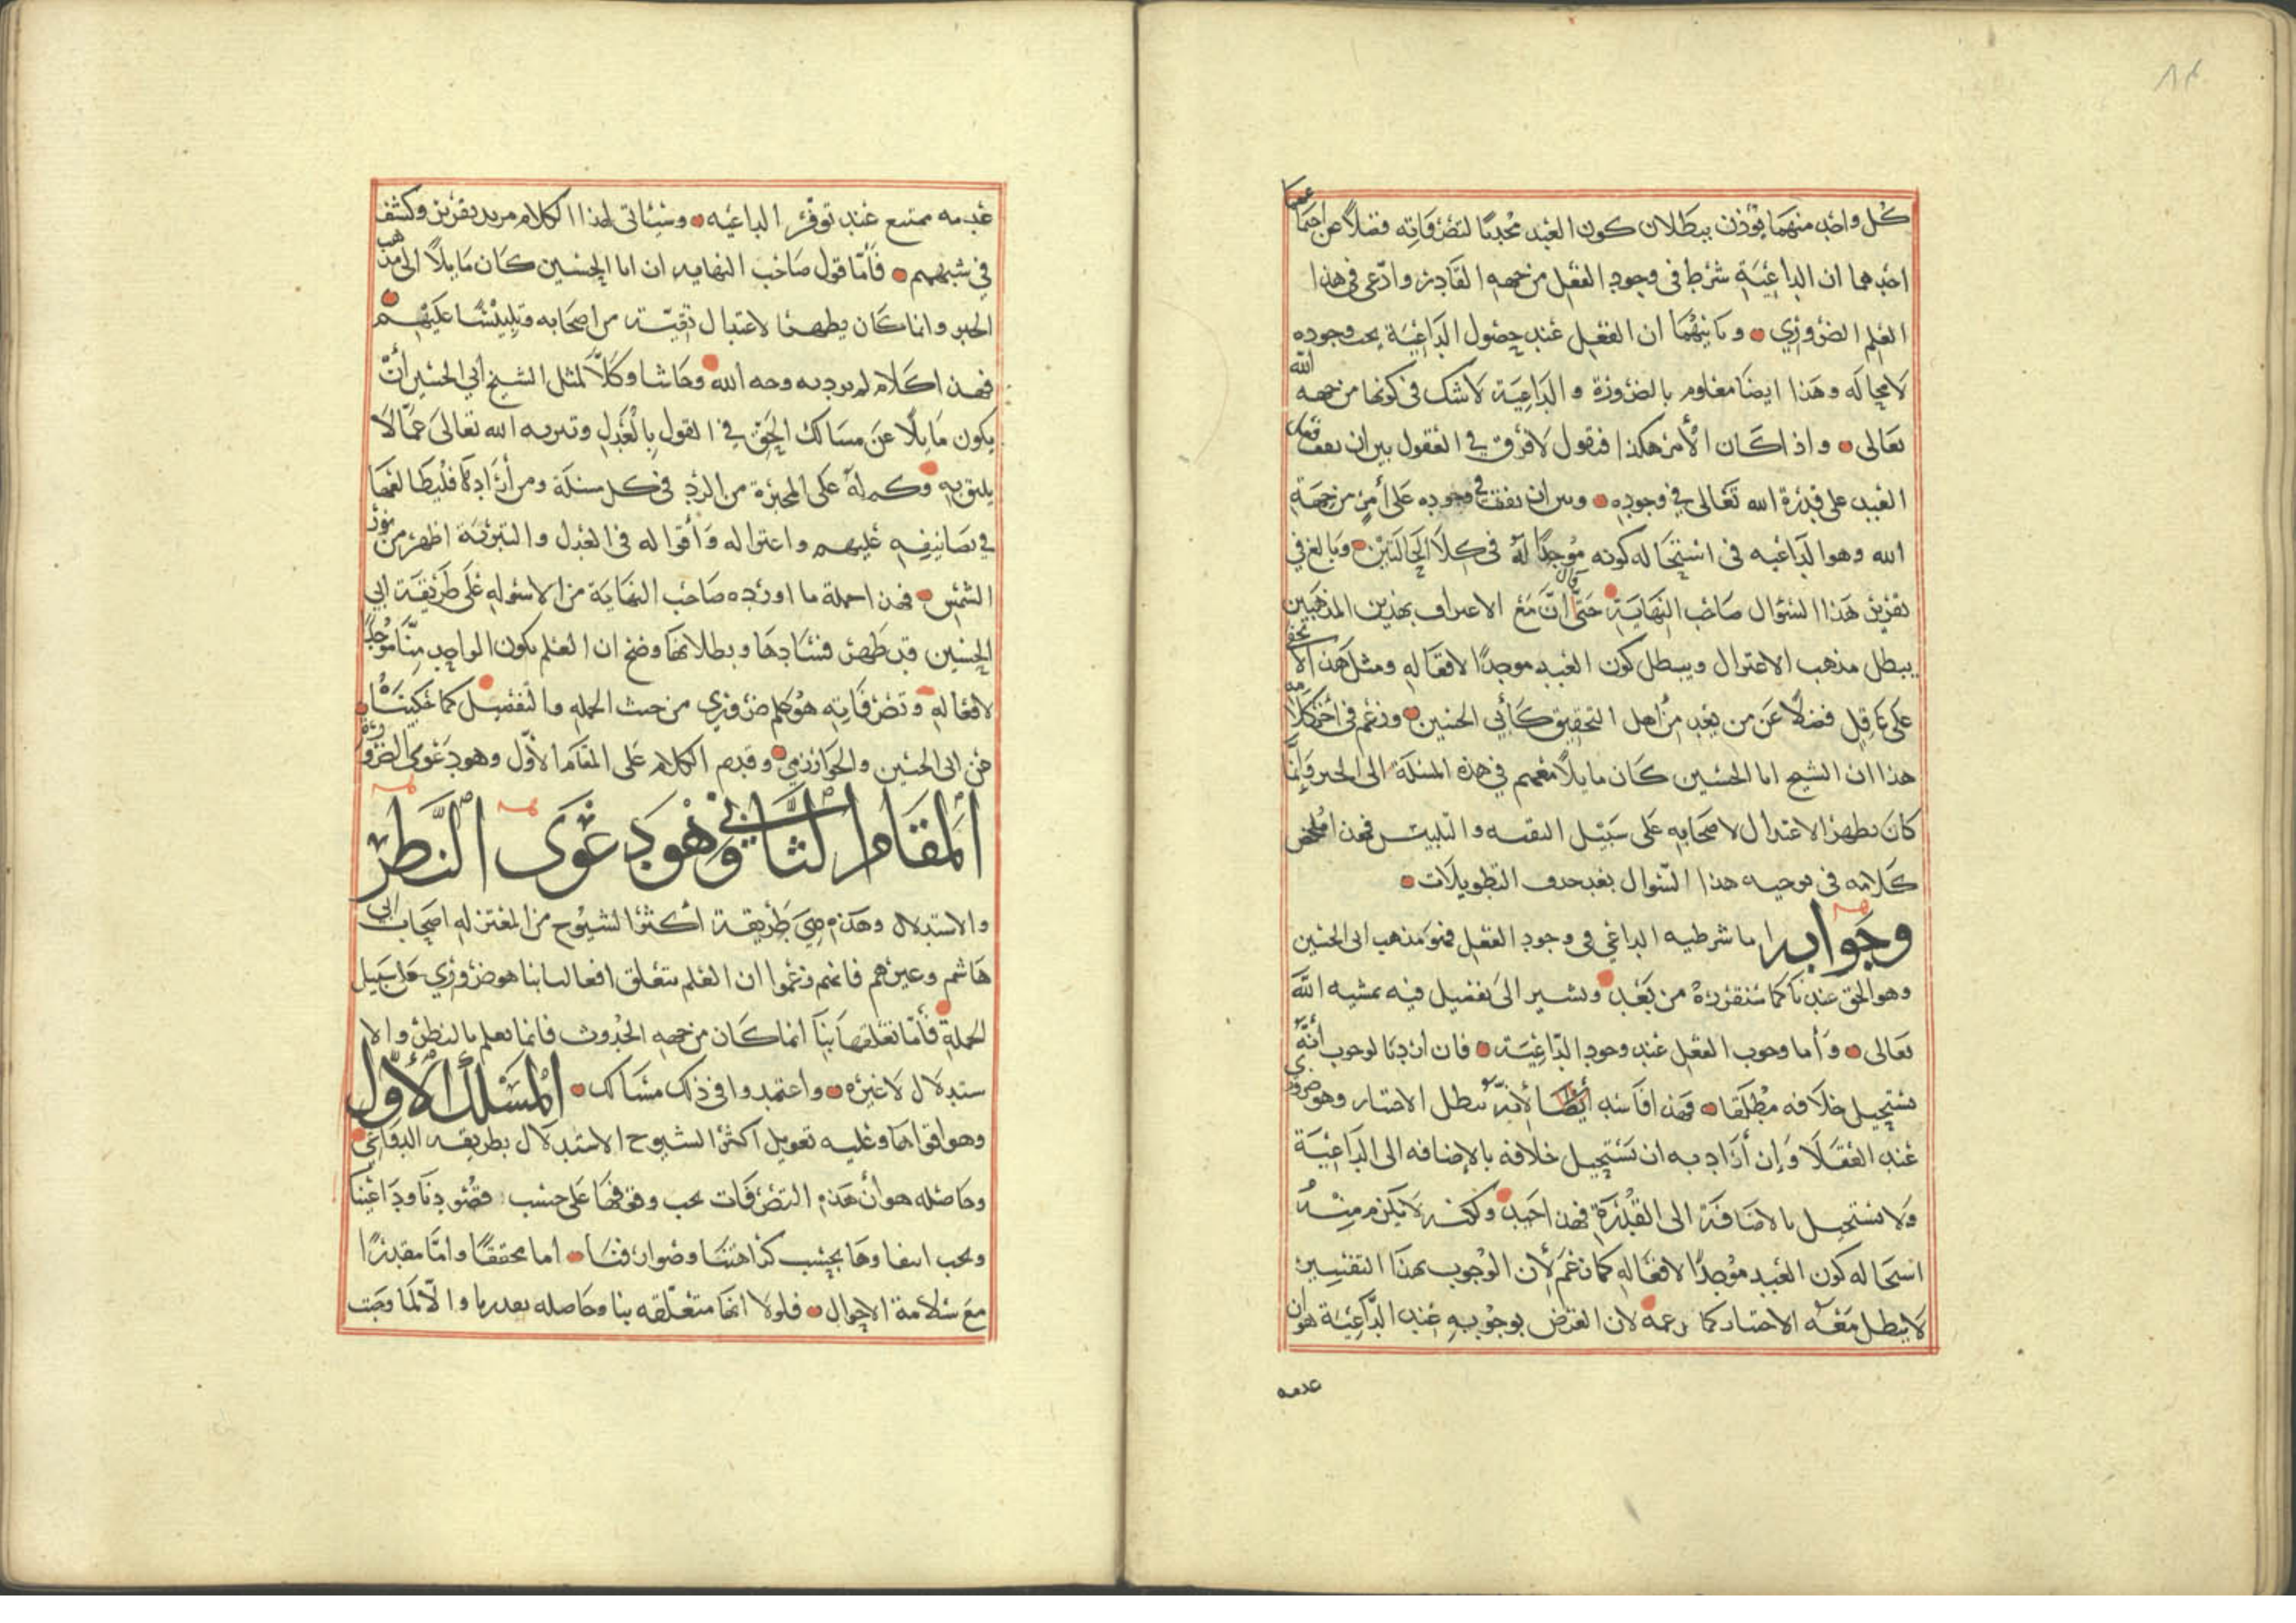 كل واحد منهما يؤذن ببطلان كون العبد محدثا لتصرفاته فضلا عن اجتماعهما
احدهما ان الداعية شرط في وجود الفعل من جهة القادر وادعى في هذا
العلم الضروري وثانيهما ان الفعل عند حصول الداعية يجب وجوده
لا محاله وهذا ايضا معلوم بالضرورة والداعية لا شك في كونها من جهه الله
تعالى واذا كان الأمر هكذا فنقول لا فرق في العقول بين ان يقف فعل
العبد على قدرة الله تعالى في وجوده وبين ان يقف في وجوده على أمر من جهة
الله وهو الداعيه في استحاله كونه موجدا له في كلا الحالتين وبالغ في
تقرير هذا السؤال صاحب النهاية حتى قال ان مع الاعتراف بهذين المذهبين
يبطل مذهب الاعتزال ويبطل كون العبد موجدا لافعاله ومثل هذا لا يخفى
على عاقل فضلا عن من يعد من أهل التحقيق كأبي الحسين وزعم في أخر كلامه
هذا ان الشيخ ابا الحسين كان مايلا معهم في هذه المسئلة الى الجبر وإنما
كان يظهر الاعتزال لاصحابه على سبيل التقيه والتلبيس فهذا ملخص
كلامه في توجيه هذا السؤال بعد حذف التطويلات
وجوابه اما شرطيه الداعي في وجود الفعل فهو مذهب ابي الحسين
وهو الحق عندنا كما سنقرره من بعد ونشير الى تفصيل فيه بمشيه الله
تعالى وأما وجوب الفعل عند وجود الداعية فان اردنا لوجوب أنه
يستحيل خلافه مطلقا فهذا فاسد أيضا لأنه يبطل الاختيار وهو ضروري
عند العقلا وإن أراد به ان يستحيل خلافه بالإضافه الى الداعية
ولا يستحيل بالاضافة الى القدرة فهذا جيد ولكنه لا يلزم منه
استحاله كون العبد موجدا لافعاله كما زعم لأن الوجوب بهذا التفسير
لا يبطل معه الاختيار كما زعمه لان الغرض بوجوبه عند الداعية هو ان
عدمه
عدمه ممتنع عند توفر الداعيه وسيأتي لهذا الكلام مزيد تقرير وكشف
في شبههم فأما قول صاحب النهايه ان ابا الحسين كان مايلا الى مذهب
الجبر وانما كان يظهر الاعتزال تقية من اصحابه وتلبيسا عليهم
فهذا كلام لم يرد به وجه الله وحاشا وكلا لمثل الشيخ أبي الحسين أن
يكون مايلا عن مسالك الحق في القول بالعدل وتنزيه الله تعالى عما لا
يليق به وكم له على المجبرة من الرد في كل مسئلة ومن أراد ذلك فليطالعها
في تصانيفه عليهم واعتزاله وأقواله في العدل والتنزيه اظهر من نور
الشمس فهذا جملة ما اورده صاحب النهاية من الاسوله على طريقة ابي
الحسين قد ظهر فسادها وبطلانها وضح ان العلم بكون الواحد منا موجدا
لافعاله وتصرفاته هو علم ضروري من حيث الجمله والتفصيل كما حكيناه
عن ابي الحسين والخوارزمي وقد تم الكلام على المقام الأول وهو دعوى الضرورة
المقام الثاني وهو دعوى النظر
والاستدلال وهذه هي طريقة أكثر الشيوخ من المعتزله اصحاب ابي
هاشم وغيرهم فانهم زعموا ان العلم بتعلق افعالنا بنا هو ضروري على سبيل
الجملة فأما تعلقها بنا انما كان من جهه الحدوث فانما يعلم بالنظر والا
ستدلال لا غيره واعتمدوا في ذلك مسالك المسلك الأول
وهو اقواها وعليه تعويل اكثر الشيوخ الاستدلال بطريقه الدواعي
وحاصله هو أن هذه التصرفات يجب وقوفها على حسب قصودنا ودواعينا
ويجب انتفاوها بحسب كراهتنا وصوارفنا اما محققا واما مقدرا
مع سلامة الاحوال فلولا انها متعلقه بنا وحاصله بقدرنا والا لما وجبت